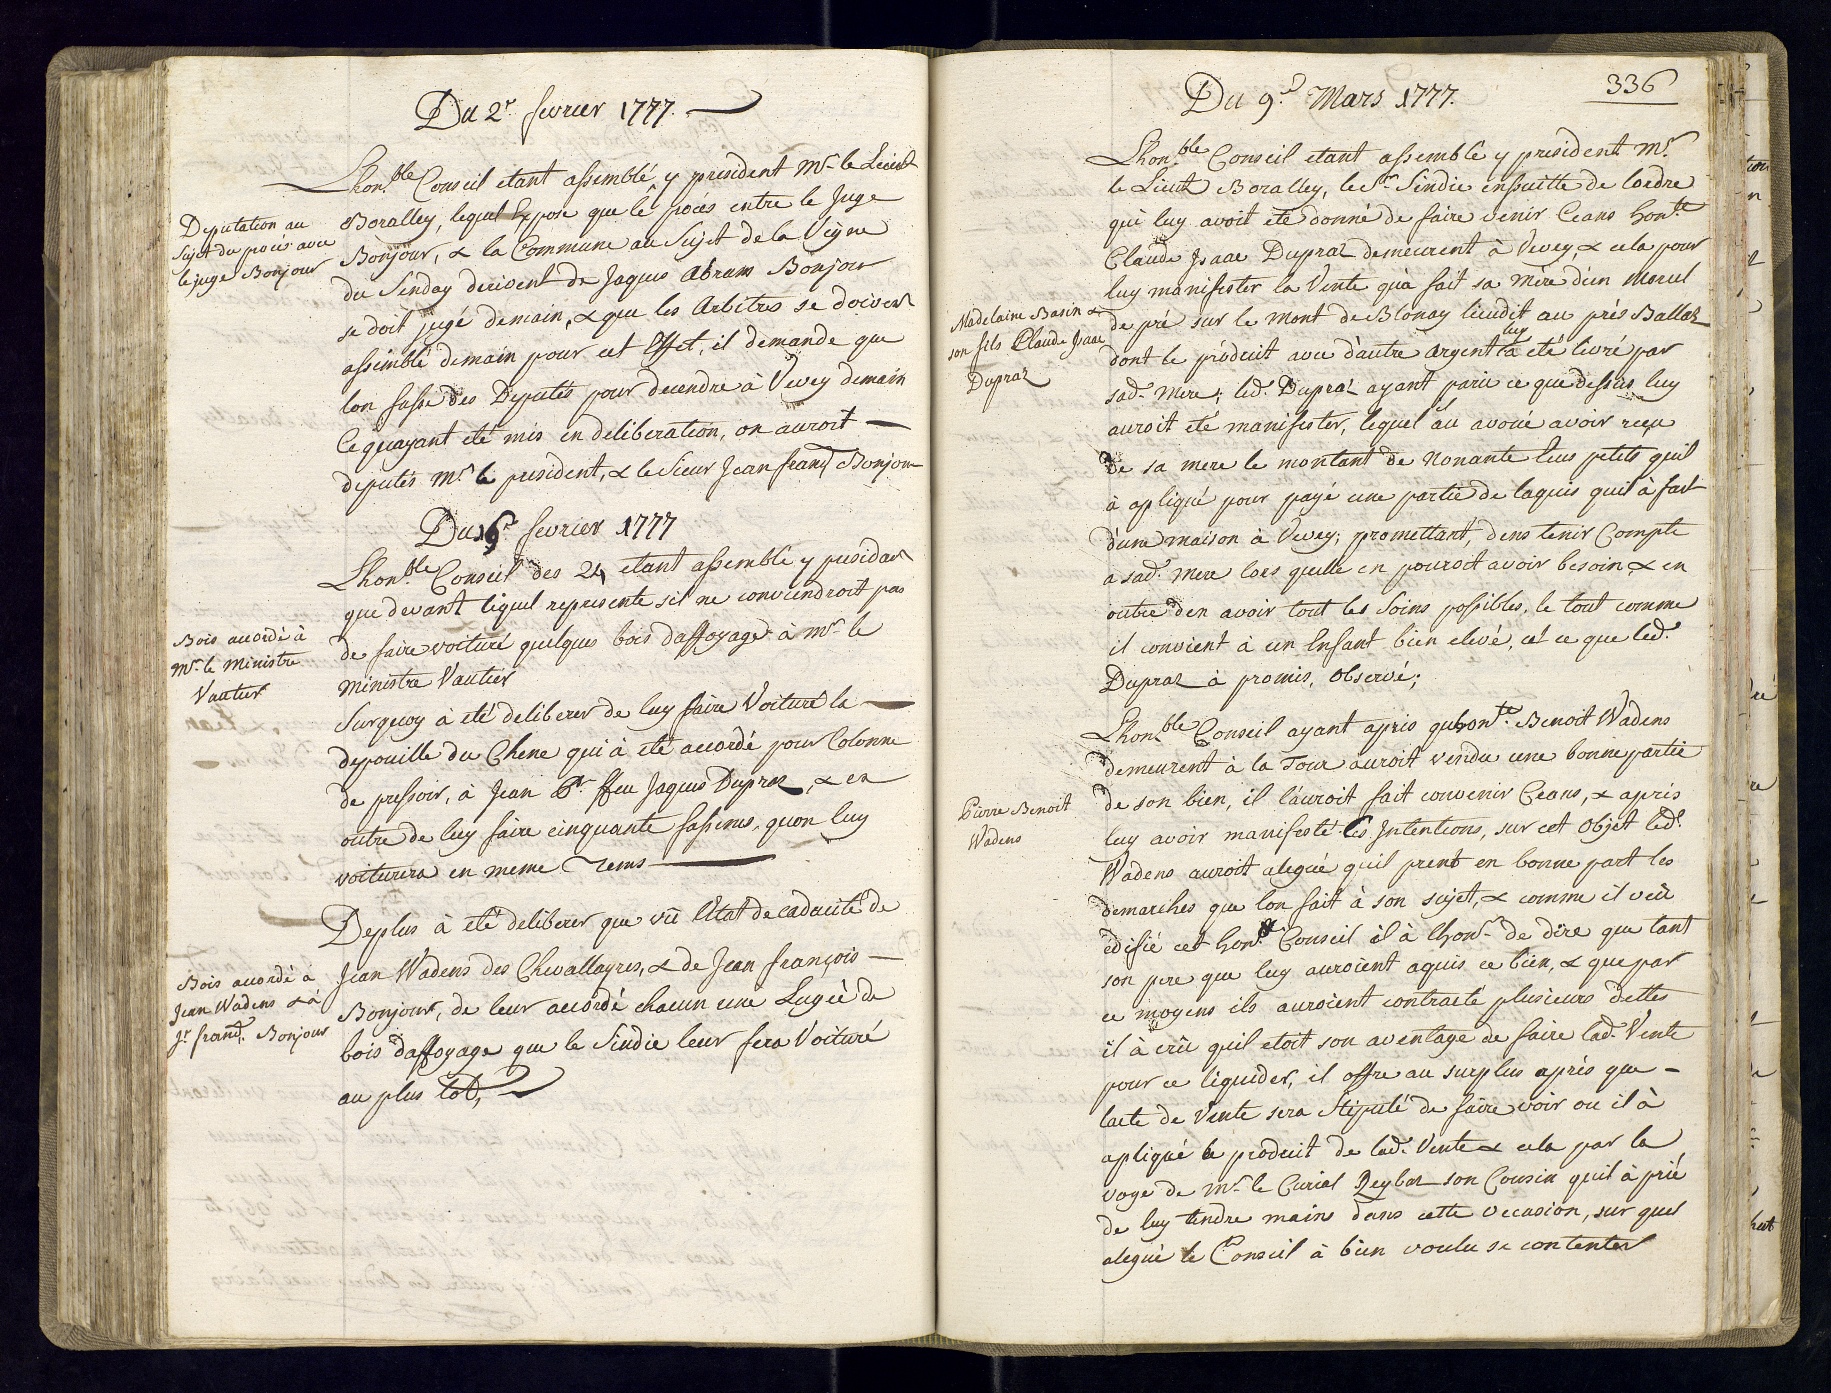 Du 2.r fevrier 1777.
Lhon.ble Conseil etant assemblé y president Mr. le Lieut
Deputation au
Sujet du procès avec
le juge Bonjour
Boralley, lequel Expose que le proces entre le Juge
Bonjour, & la Commune au Sujet de la Vigne
du Senday derivent de Jaques Abram Bonjour
se doit jugé demain, & que les Arbitres se doivent
assemblé demain pour cet Effet, il demande que
lon fasse des Deputés pour decendre à Vevey demain
Ce quayant eté mis en deliberation, on auroit
deputés Mr. le president, & le Sieur Jean franç Bonjour
Du 16.r fevrier 1777
Lhon.ble Conseil des 24 etant assemblé y presidant
que devant lequel represente sil ne conviendroit pas
Bois accordé à
Mr. le Ministre
Vautier
de faire voituré quelques bois daffoyage à Mr. le
Ministre Vautier
Surquoy à eté deliberer de luy faire Voituré la
depouille du Chene qui à eté accordé pour Colonne
de pressoir, à Jean P.r ffeu Jaques Dupraz, & en
outre de luy faire cinquante fassines, quon luy
voiturera en meme Tems
Deplus à eté deliberer que vû l'Etat de caducité de
Bois accordé à
Jean Wadens & à
J.n franç. Bonjour
Jean Wadens des Chevallayres, & de Jean françois
Bonjour, de leur accordé chacun une Lugée de
bois daffoyage que le Sindic leur fera Voituré
au plus tôt,
336
Du 9.e Mars 1777.
Lhon.ble Conseil etant assemblé y president Mr.
le Lieut Boralley, le Sr. Sindic ensuitte de lordre
qui luy avoit eté donné de faire venir Ceans hon.te
Claude Isaac Dupraz demeurent à Vevey, & cela pour
luy manifester la Vente quà fait sa Mère d'un Morcel
Madelaine Basin &
son fils Claude Isaac
Dupraz
de pré sur le Mont de Blonay lieudit au prés Ballaz
dont le produit avec d'autre argent luy à eté livré par
sad. Mere; led. Dupraz ayant paru ce que dessus luy
auroit eté manifester, lequel au avoué avoir reçu
de sa mere le montant de Nonante leus petits quil
à apliqué pour payé une partie de laquis quil à fait
d'une maison à Vevey; promettant, dens tenir Compte
a sad. Mere lors quelle en pouroit avoir besoin, & en
outre den avoir tout les Soins possibles, le tout comme
il convient à un Enfant bien elevé, cèt ce que led.
Dupraz à promis, Observé;
Lhon.ble Conseil ayant apris quhon.te Benoit Wadens
demeurent à la Tour auroit vendu une bonne partie
Pierre Benoit
Wadens
de son bien, il l'auroit fait convenir Ceans, & après
luy avoir manifesté les Intentions, sur cet Objet led.
Wadens auroit alegué quil prent en bonne part les
demarches que lon fait à son sujet, & comme il veu
edifié cet hon. Conseil il à lhon.r de dire que tant
son pere que luy auroient aquis ce bien, & que par
ce moyens ils auroient contracté plusieurs dettes
il à crû quil etoit son aventage de faire lad. Vente
pour ce liquider, il offre au surplus après que
lacte de Vente sera Stipulé de faire voir ou il à
apliqué le produit de lad. Vente & cela par la
voye de Mr. le Curial Peybaz son Cousin quil à prié
de luy tendre mains dans cette occasion, sur quel
alegué le Conseil à bien voulu se contenter